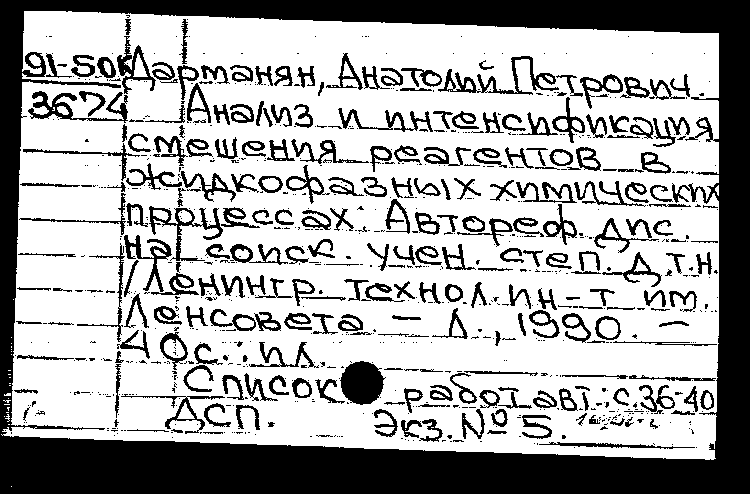 91-50к Дарманян, Анатолий Петрович.
3674 Анализ и интенсификация
смешения реагентов в
жидкофазных химических
процессах: Автореф. дис.
на соиск. учен. степ. д.т.н.
/Ленингр. технол. ин-т им.
Ленсовета. — Л., 1990. —
40с.: ил.
Список работ авт.: с.36-40
ДСП. Экз. № 5.